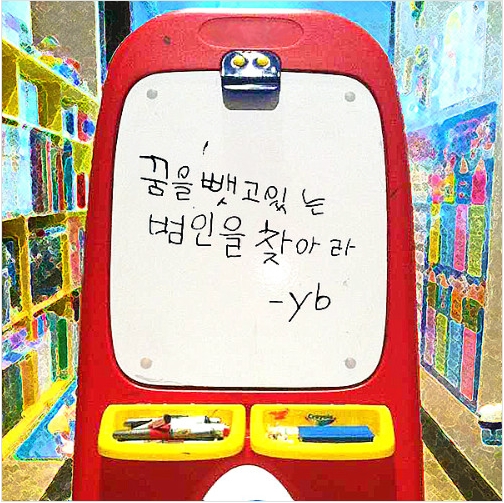 꿈을 뺏고있는
범인을 찾아라
-yb